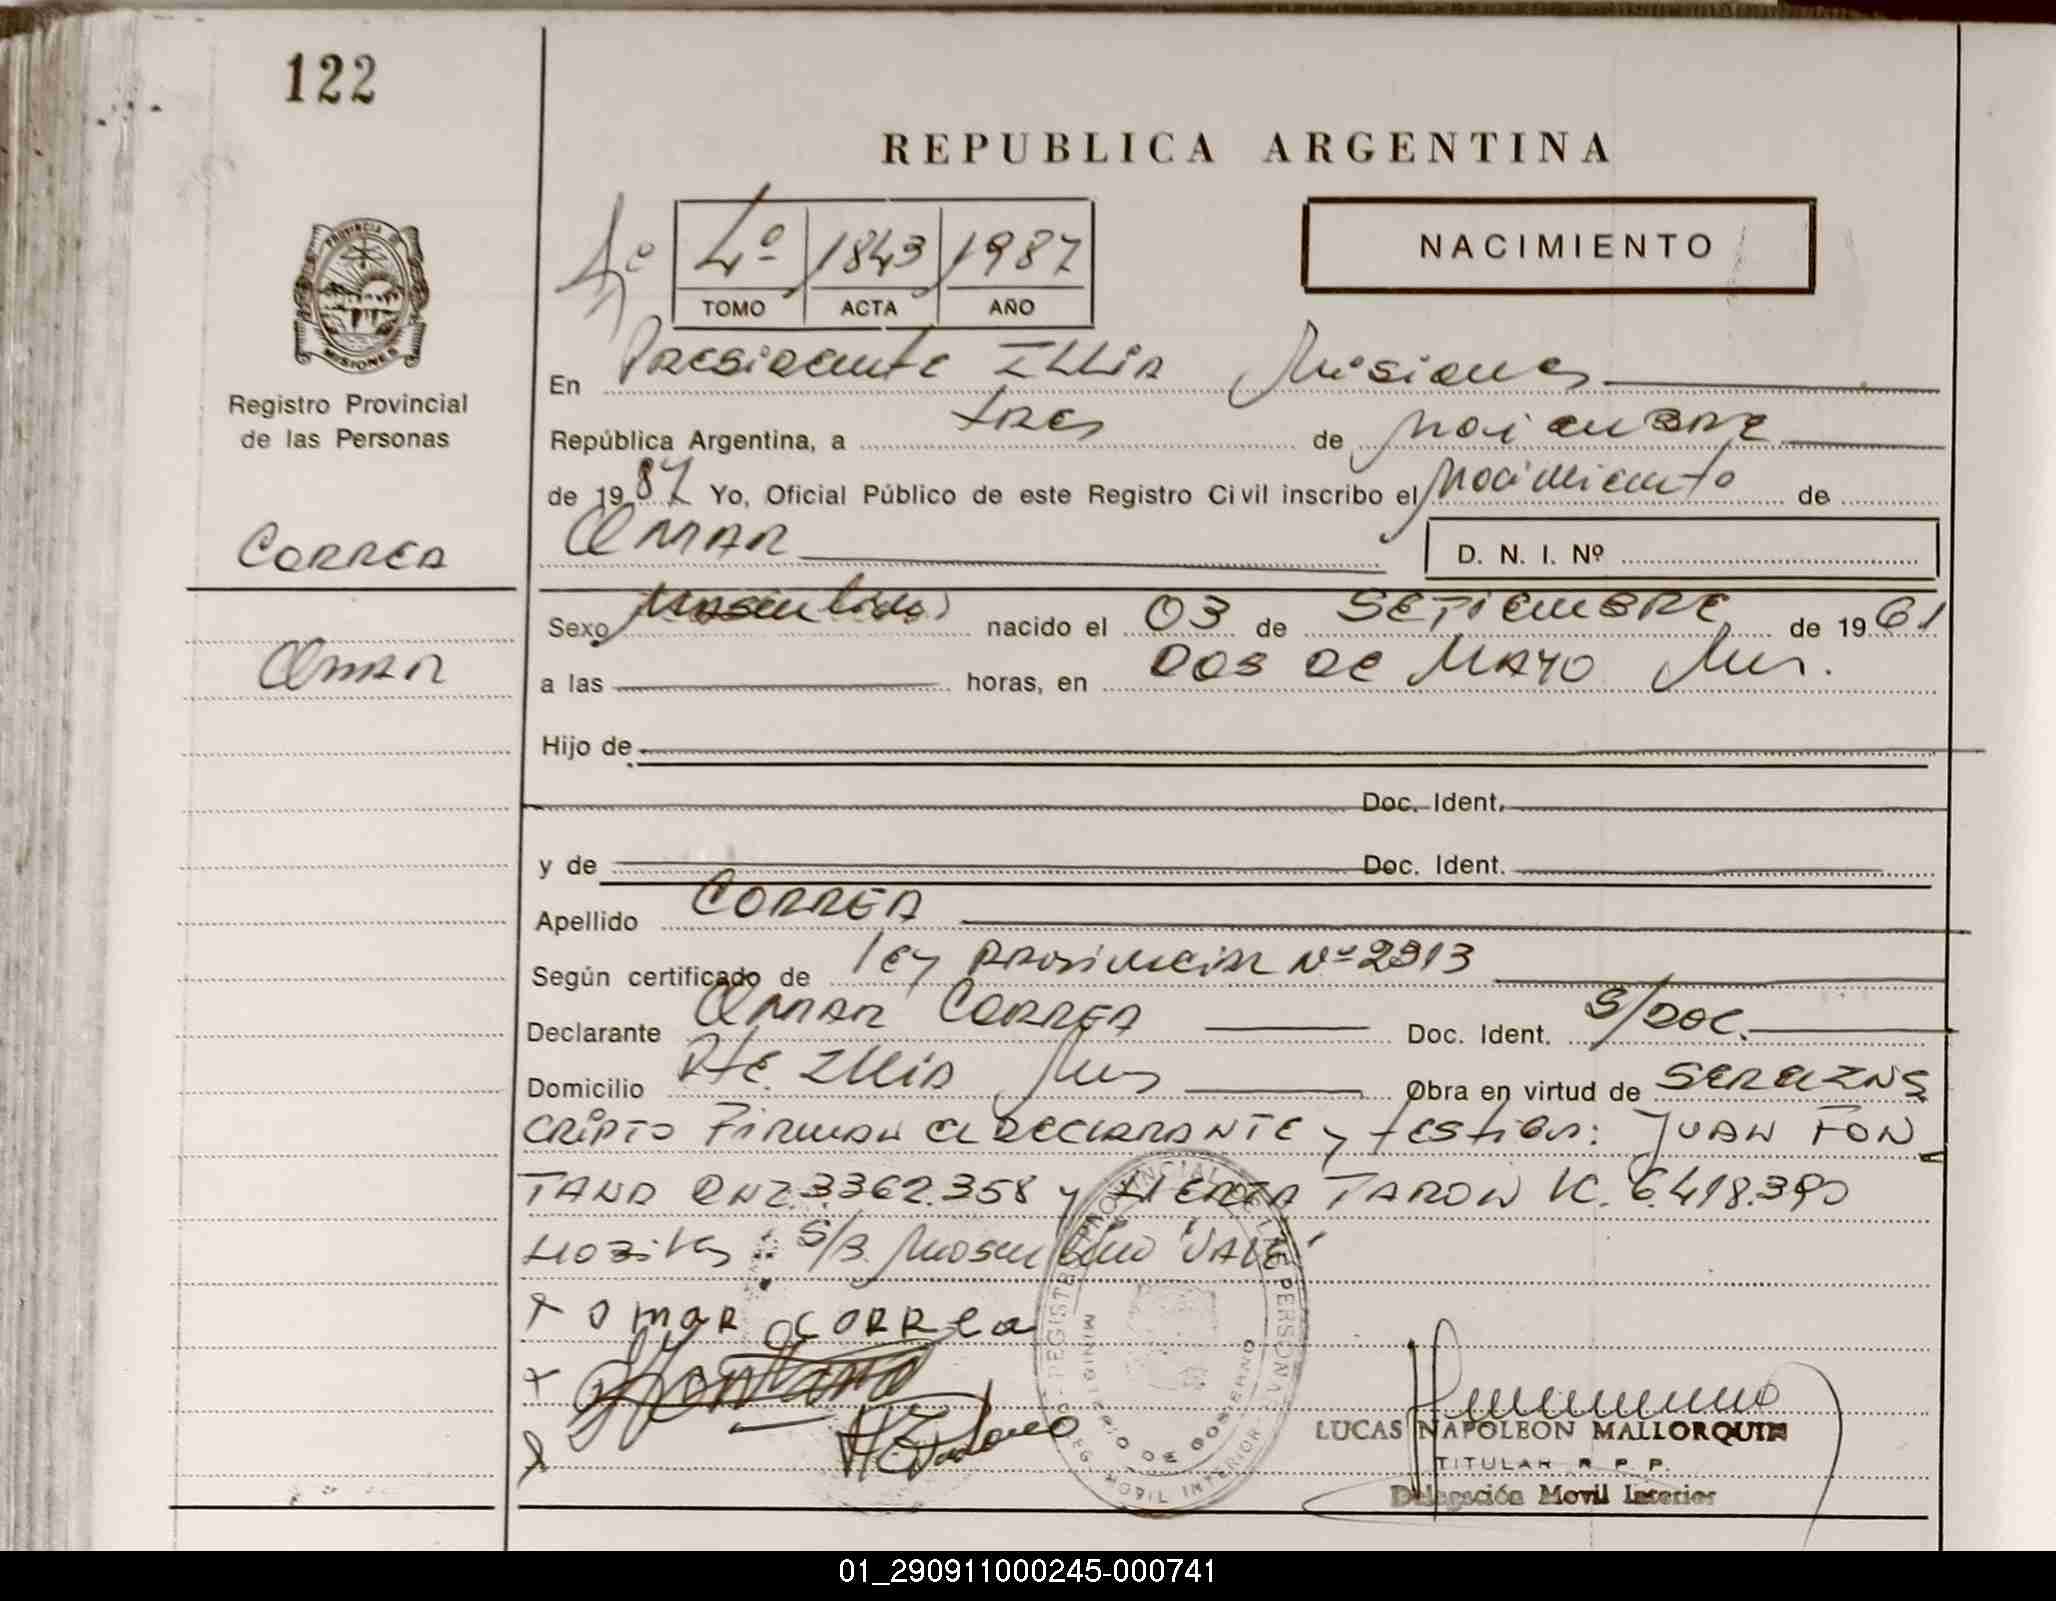 122
REPUBLICA ARGENTINA
4º 4º 1843 1987
TOMO ACTA AÑO
NACIMIENTO
PROVINCIA DE
MISIONES
Registro Provincial
de las Personas
CORREA
OMAR
En Presidente Illia Misiones
República Argentina, a tres de noviembre
de 1987 Yo, Oficial Público de este Registro Civil inscribo el nacimiento de
OMAR D. N. I. Nº
Sexo Masculino nacido el 03 de SETIEMBRE de 1961
a las horas, en DOS DE MAYO Mis.
Hijo de
Doc. Ident.
y de Doc. Ident.
Apellido CORREA
Según certificado de ley Provincial Nº 2913
Declarante OMAR CORREA Doc. Ident. S/DOC.
Domicilio Pte. Illia Mis Obra en virtud de SER EL INS
CRIPTO Firman el DECLARANTE y testigos: JUAN FON
TANA DNI. 3362.358 y TARON IC. 6.418.390
S/B. Masculino "VALE"
x omar correa
x Fontana
x
REGISTRO PROVINCIAL DE LAS PERSONAS
MINISTERIO DE GOBIERNO
LUCAS NAPOLEON MALLORQUIN
TITULAR R. P. P.
Delegación Movil Interior
01_290911000245-000741